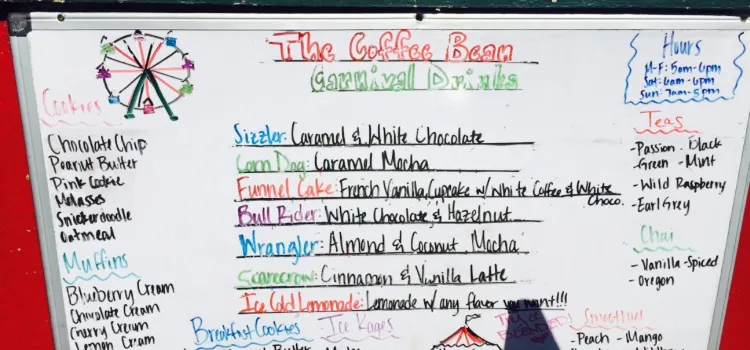 The Coffee Bean
Carnival Drinks
Hours
M-F: 5am-6pm
Sat: 6am-6pm
Sun: 7am-5pm
Cookies
Chocolate Chip
Peanut Butter
Pink Cookie
Molasses
Snickerdoodle
Oatmeal
Muffins
Blueberry Cream
Chocolate Cream
Cherry Cream
Lemon Cream
Sizzler: Caramel & White Chocolate
Corn Dog: Caramel Mocha
Funnel Cake: French Vanilla, Cupcake w/ White Coffee & White
Choco.
Bull Rider: White Chocolate & Hazelnut
Wrangler: Almond & Coconut Mocha
Scarecrow: Cinnamon & Vanilla Latte
Ice Cold Lemonade: Lemonade w/ any flavor you want!!!
Breakfast Cookies
Butter
Ice Rages
Try a
BLENDED!
Teas
-Passion . Black
-Green - Mint
-Wild Raspberry
-Earl Grey
Chai
-Vanilla -Spiced
-Oregon
Smoothies
-Peach - Mango